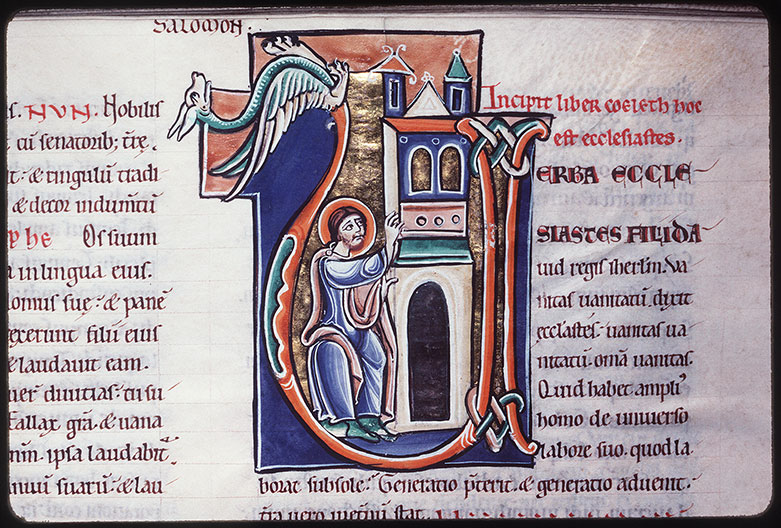 SALOMON.
s. NVN. Nobilis
cū senatorib; t̄re.
t: & cingulū tradi
& decor indum̄tū
phe Os suum
a in lingua eius.
domus suę: & panē
rexerunt filii eius
& laudauit eam.
uer̄ diuitias: tu su
fallax gr̄a: & uana
nūm ipsa laudabit̄.
anuū suarū: & lau
Incipit liber coeleth hoc
est ecclesiastes.
ERBA ECCLE
SIASTES FILII DA
uid regis iherl̄m. Va
nitas uanitatū, dixit
eccl̄astes: uanitas ua
nitatū: omā uanitas.
Quid habet ampli᾿
homo de uniuerso
labore suo. quod la
borat sub sole. Generatio p̄terit & generatio aduenit.